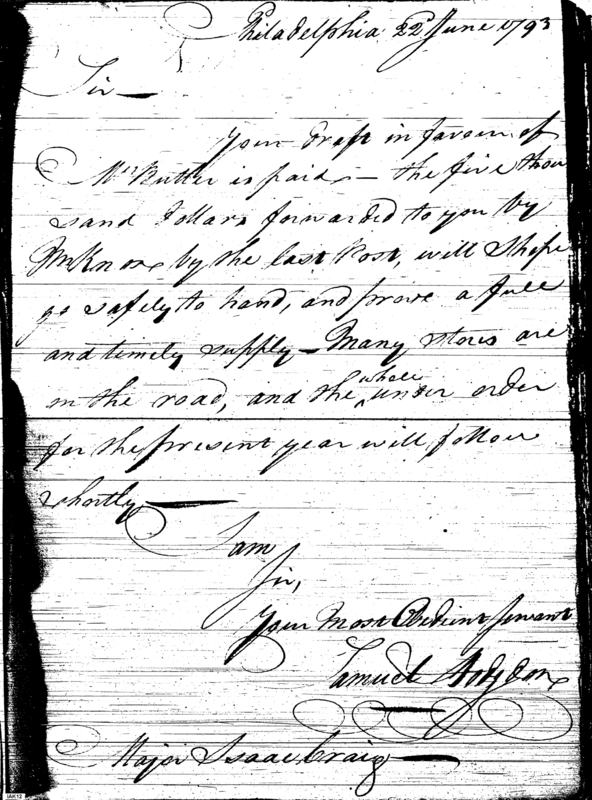 Philadelphia 22d June 1793
Sir—
Your draft in favour of
Mr Butler is paid — the five thou
sand Dollars forwarded to you by
Mr Knox by the last Post, will I hope
go safely to hand, and prove a full
and timely supply — Many stores are
on the road, and the whole under order
for the present year will follow
shortly —
I am
Sir,
Your most Obedient Servant
Samuel Hodgdon
Major Isaac Craig —
IAK12